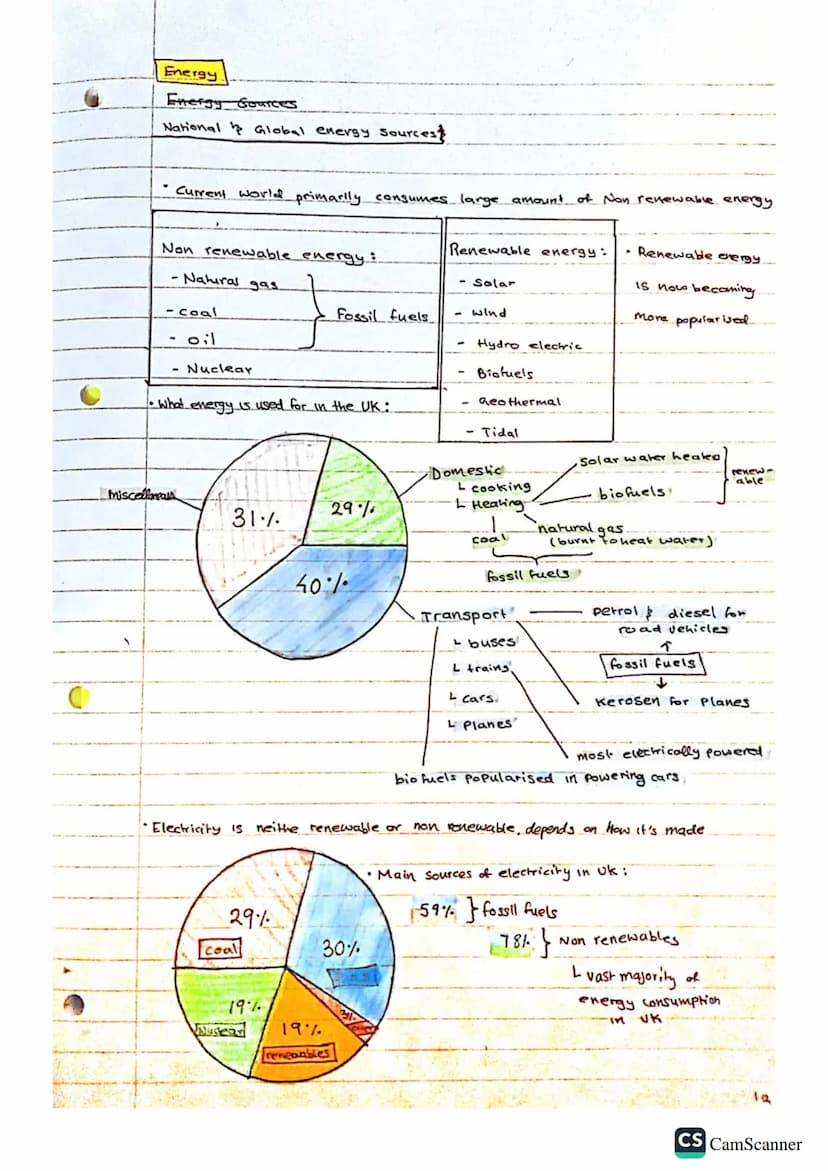 Energy
Energy Sources
National & Global energy sources
• Current world primarily consumes large amount of Non renewable energy
Non renewable energy:
- Natural gas
- coal
- oil
Fossil fuels
- Nuclear
Renewable energy:
- Solar
- Wind
- Hydro electric
- Biofuels
- Geothermal
- Tidal
• Renewable energy
is now becoming
more popularised
• What energy is used for in the UK:
31%
29%
40%
Domestic
cooking
Heating
Solar water heated
biofuels
renew-
able
natural gas
(burnt to heat water)
coal
fossil fuels
Transport
buses
trains
cars
Planes
petrol & diesel for
road vehicles
fossil fuels
Kerosen for Planes
most electrically powered
bio fuels popularised in powering cars
• Electricity is neithe renewable or non renewable, depends on how it's made
• Main sources of electricity in UK:
29%
coal
30%
19%
Nuclear
19%
renewables
3%
59% } fossil fuels
78% } Non renewables
vast majority of
energy consumption
in UK
CS CamScanner